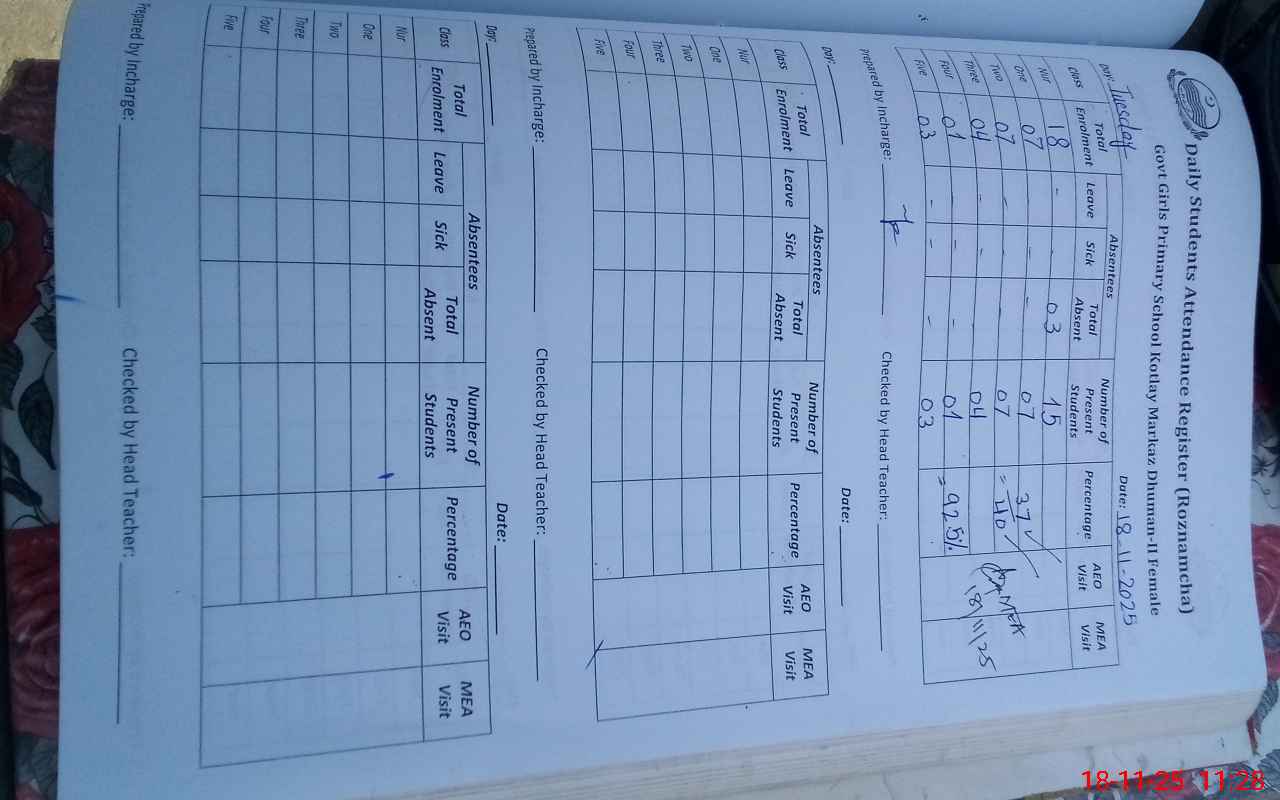 Daily Students Attendance Register (Roznamcha)
Govt Girls Primary School Kotlay Markaz Dhuman-II Female
Day: Tuesday Date: 18-11-2025
Class Total Enrolment Absentees Number of Present Students Percentage AEO Visit MEA Visit
Leave Sick Total Absent
Nur 18 - - 03 15
One 07 - - - 07 37
Two 07 - - - 07 = 40
Three 04 - - - 04
Four 01 - - - 01 = 92.5%
Five 03 - - - 03
MEA
18/11/25
prepared by Incharge: Checked by Head Teacher:
Day: Date:
Class Total Enrolment Absentees Number of Present Students Percentage AEO Visit MEA Visit
Leave Sick Total Absent
Nur
One
Two
Three
Four
Five
Prepared by Incharge: Checked by Head Teacher:
Day: Date:
Class Total Enrolment Absentees Number of Present Students Percentage AEO Visit MEA Visit
Leave Sick Total Absent
Nur
One
Two
Three
Four
Five
Prepared by Incharge: Checked by Head Teacher:
18-11-25 11:28